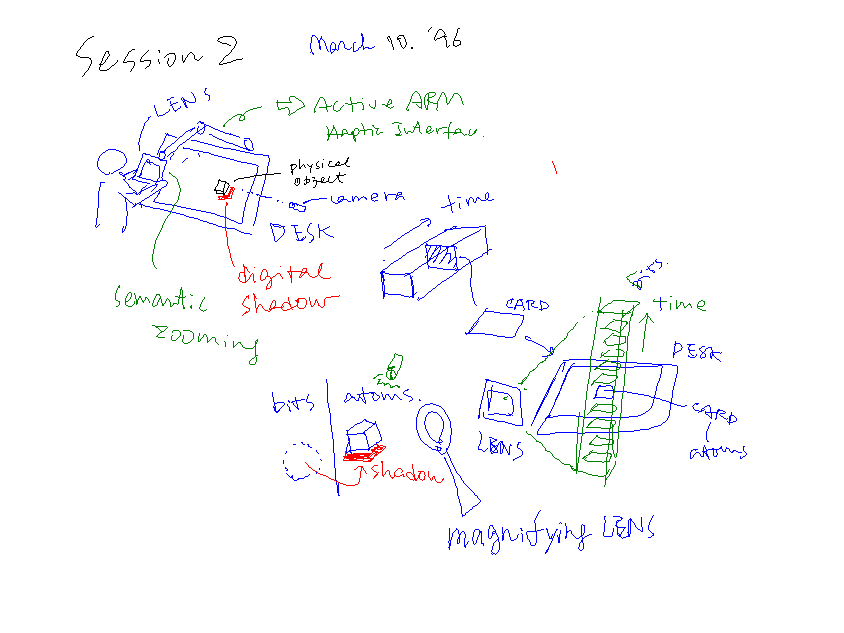 Session 2
March 10. '96
LENS
Active ARM
Haptic Interfac.
physical
object
camera
DESK
time
digital
shadow
semantic
zooming
CARD
bits.
time
DESK
bits
atoms.
LENS
CARD
atoms
shadow
magnifying LENS